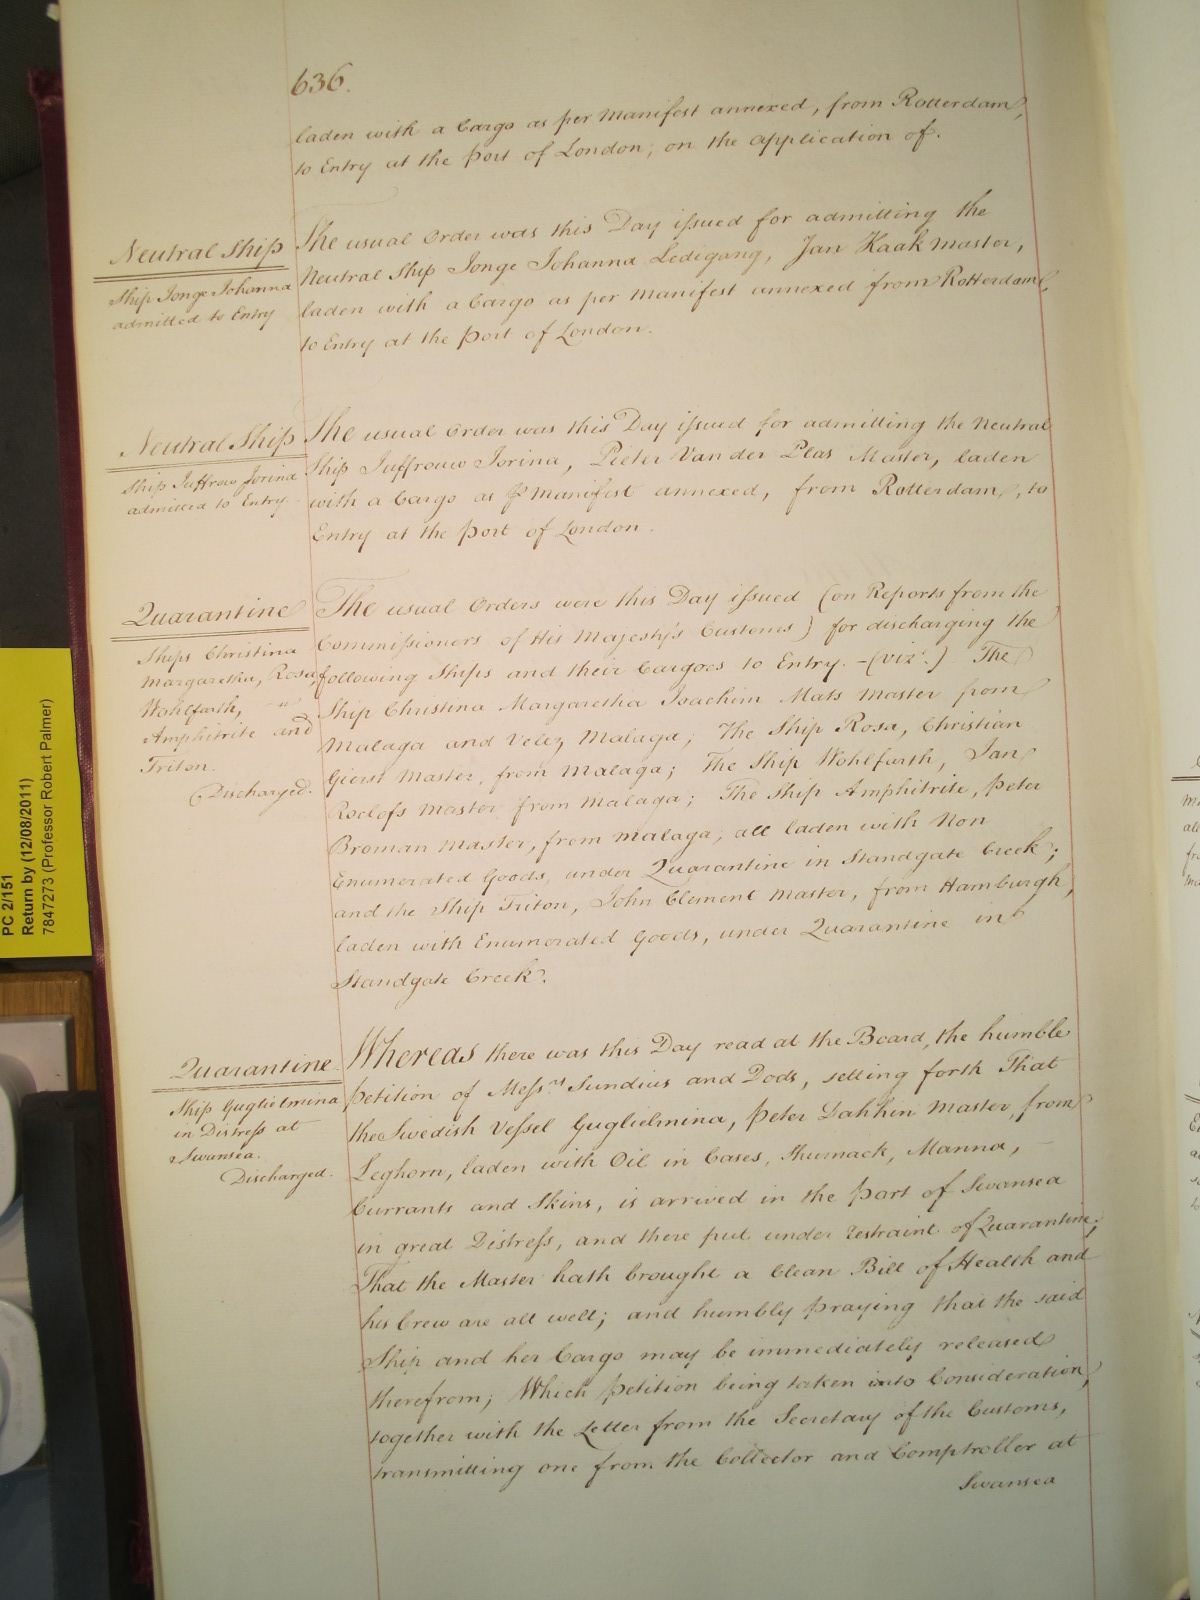 636.
laden with a Cargo as per Manifest annexed, from Rotterdam,
to Entry at the Port of London, on the application of.
Neutral Ship
Ship Jonge Johanna
admitted to Entry
The usual Order was this Day issued for admitting the
Neutral Ship Jonge Johanna Ledigang, Jan Kaak Master,
laden with a Cargo as per Manifest annexed from Rotterdam,
to Entry at the Port of London.
Neutral Ship
Ship Juffrow Jorina
admitted to Entry.
The usual Order was this Day issued for admitting the Neutral
Ship Juffrouw Jorina, Pieter Van der Plas Master, laden
with a Cargo as p Manifest annexed, from Rotterdam, to
Entry at the Port of London.
Quarantine
Ships Christina
Margaretha, Rosa,
Wohlfarth,
Amphitrite and
Triton.
Discharged.
The usual Orders were this Day issued (on Reports from the
Commissioners of His Majesty's Customs) for discharging the
following Ships and their Cargoes to Entry. - (vizt.) The
Ship Christina Margaretha Joachim Mats Master from
Malaga and Velez Malaga; The Ship Rosa, Christian
Gierst Master, from Malaga; The Ship Wohlfarth, Jan
Roelofs Master from Malaga; The Ship Amphitrite, Peter
Broman Master, from Malaga, all laden with Non
Enumerated Goods, under Quarantine in Standgate Creek;
and the Ship Triton, John Clement Master, from Hamburgh,
laden with Enumerated Goods, under Quarantine in
Standgate Creek.
Quarantine.
Ship Guglielmina
in Distress at
Swansea.
Discharged.
Whereas there was this Day read at the Board, the humble
Petition of Messrs. Sundius and Dods, setting forth That
the Swedish Vessel Guglielmina, Peter Dahkin Master, from
Leghorn, laden with Oil in Cases, Shumack, Manna,
Currants and Skins, is arrived in the Port of Swansea
in great Distress, and there put under restraint of Quarantine;
That the Master hath brought a Clean Bill of Health and
his Crew are all well; and humbly praying that the said
Ship and her Cargo may be immediately released
therefrom; Which Petition being taken into Consideration,
together with the Letter from the Secretary of the Customs,
transmitting one from the Collector and Comptroller at
Swansea
PC 2/151
Return by (12/08/2011)
7847273 (Professor Robert Palmer)